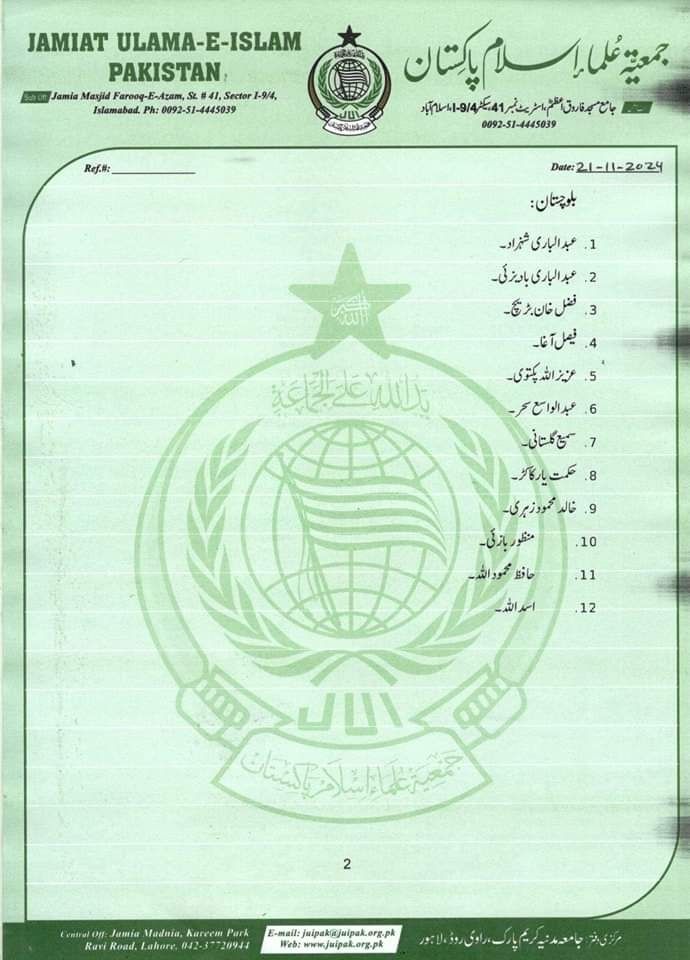 JAMIAT ULAMA-E-ISLAM
PAKISTAN
جمعیۃ علماء اسلام پاکستان
Sub Off: Jamia Masjid Farooq-E-Azam, St. # 41, Sector I-9/4,
Islamabad. Ph: 0092-51-4445039
جامع مسجد فاروق اعظم، اسٹریٹ نمبر 41 سیکٹر I-9/4، اسلام آباد
0092-51-4445039
Ref.#:
Date: 21-11-2024
بلوچستان:
1. عبدالباری شہزاد۔
2. عبدالباری بادیزئی۔
3. فضل خان بڑیچ۔
4. فیصل آغا۔
5. عزیز اللہ پکتوی۔
6. عبدالواسع سحر۔
7. سمیع گلستانی۔
8. حکمت یار کاکڑ۔
9. خالد محمود زہری۔
10. منظور بازئی۔
11. حافظ محمود اللہ۔
12. اسد اللہ۔
الله اكبر
يد الله على الجماعة
J.U.I
جمعية علماء اسلام پاکستان
2
Central Off: Jamia Madnia, Kareem Park
Ravi Road, Lahore. 042-37720944
E-mail: juipak@juipak.org.pk
Web: www.juipak.org.pk
مرکزی دفتر: جامعہ مدنیہ کریم پارک، راوی روڈ، لاہور